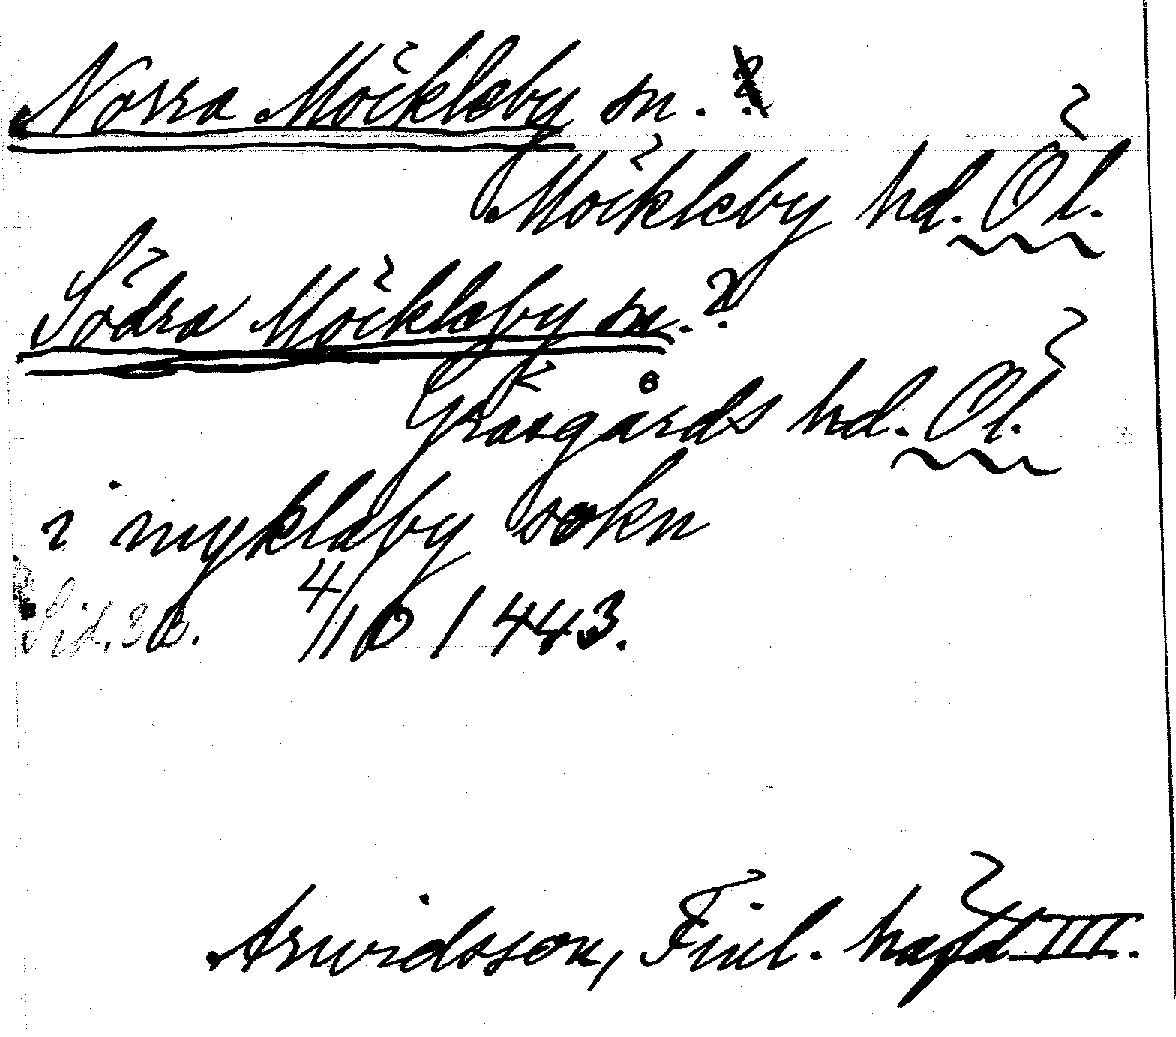 Norra Möckleby sn.
Möckleby hd. Öl.
Södra Möckleby sn. ?
Gräsgårds hd. Öl.
i myklaby sokn
Sid. 30. 4/10 1443.
Arwidsson, Finl. häfd III.